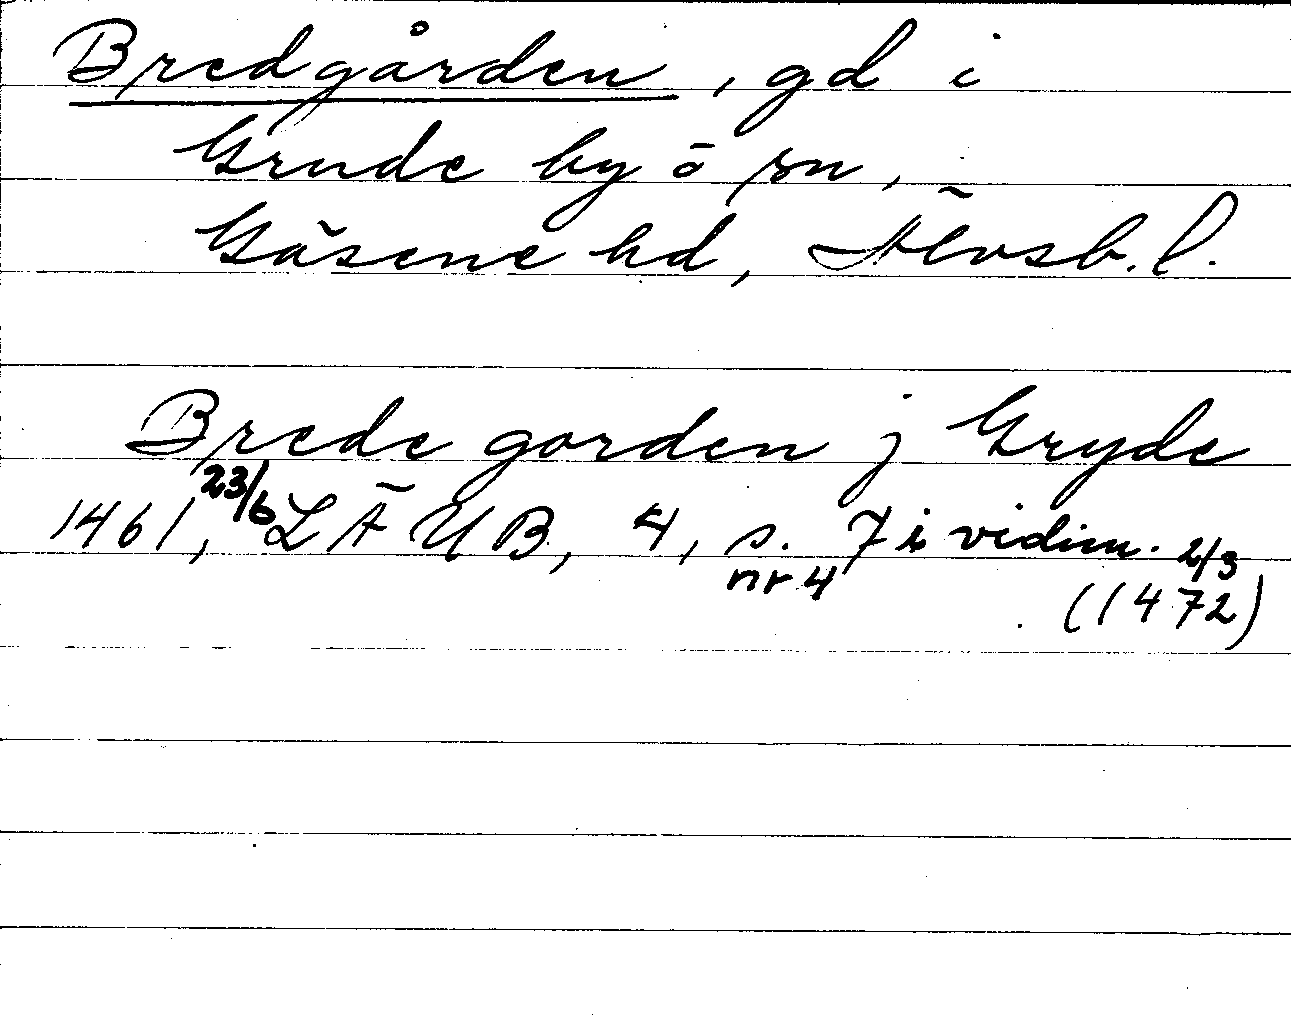 Bredgården, gd i
Grude by o sn,
Gäsene hd, Älvsb. l.
Brede gorden j Gryde
1461, 23/6 LÄUB, 4, s. 7 i vidim. 2/3
nr 4 (1472)